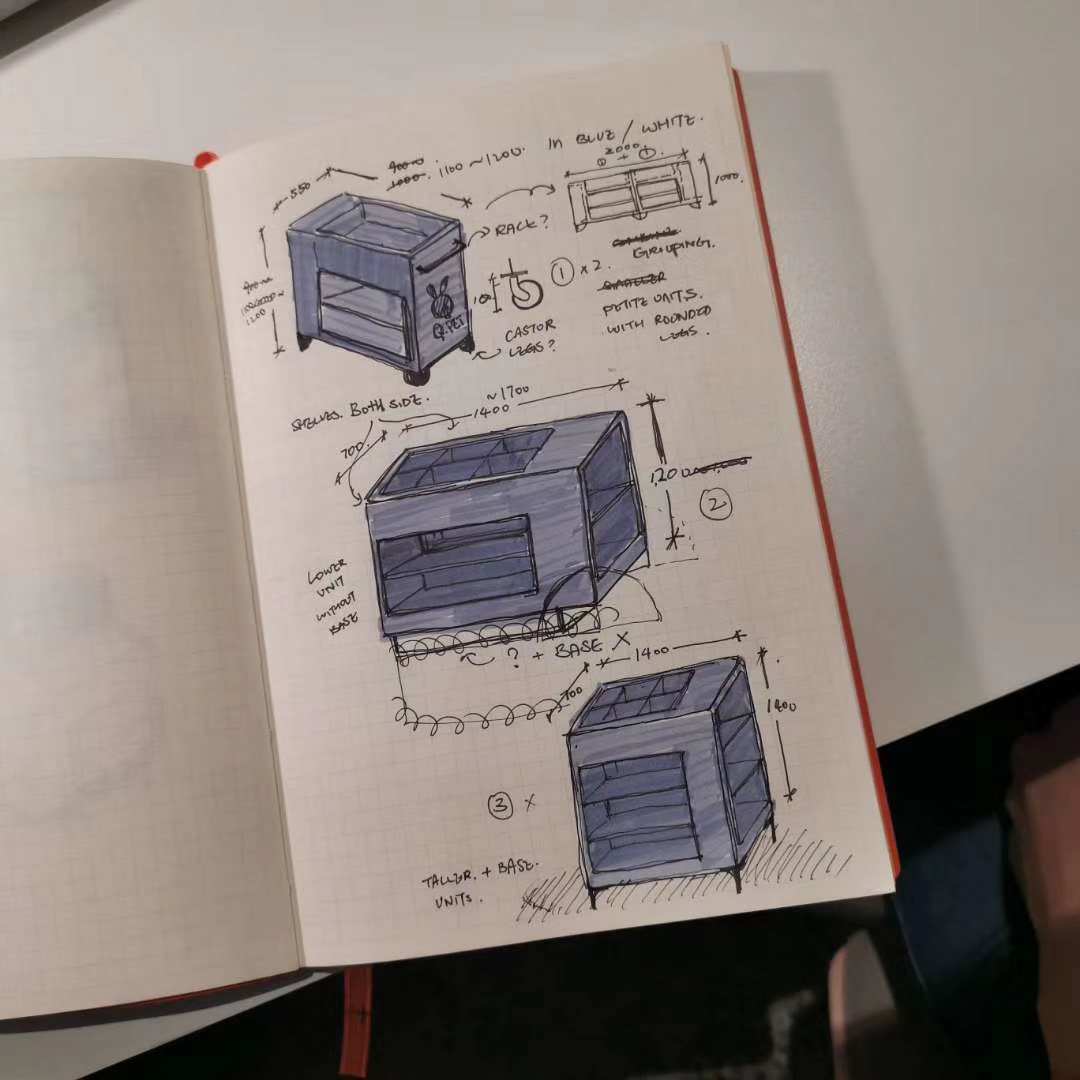 In BLUE / WHITE.
1100 ~ 1200.
550
2000
① + ①
1000.
RACK?
GROUPING.
① x 2.
PETITE UNITS.
WITH ROUNDED
LEGS.
1200
100
Q.PET
CASTOR
LEGS?
SHELVES. BOTH SIDE.
~1700
1400
700
120
②
LOWER
UNIT
WITHOUT
BASE
? + BASE X
1400
700
1400
③ x
TALLER. + BASE.
UNITS.